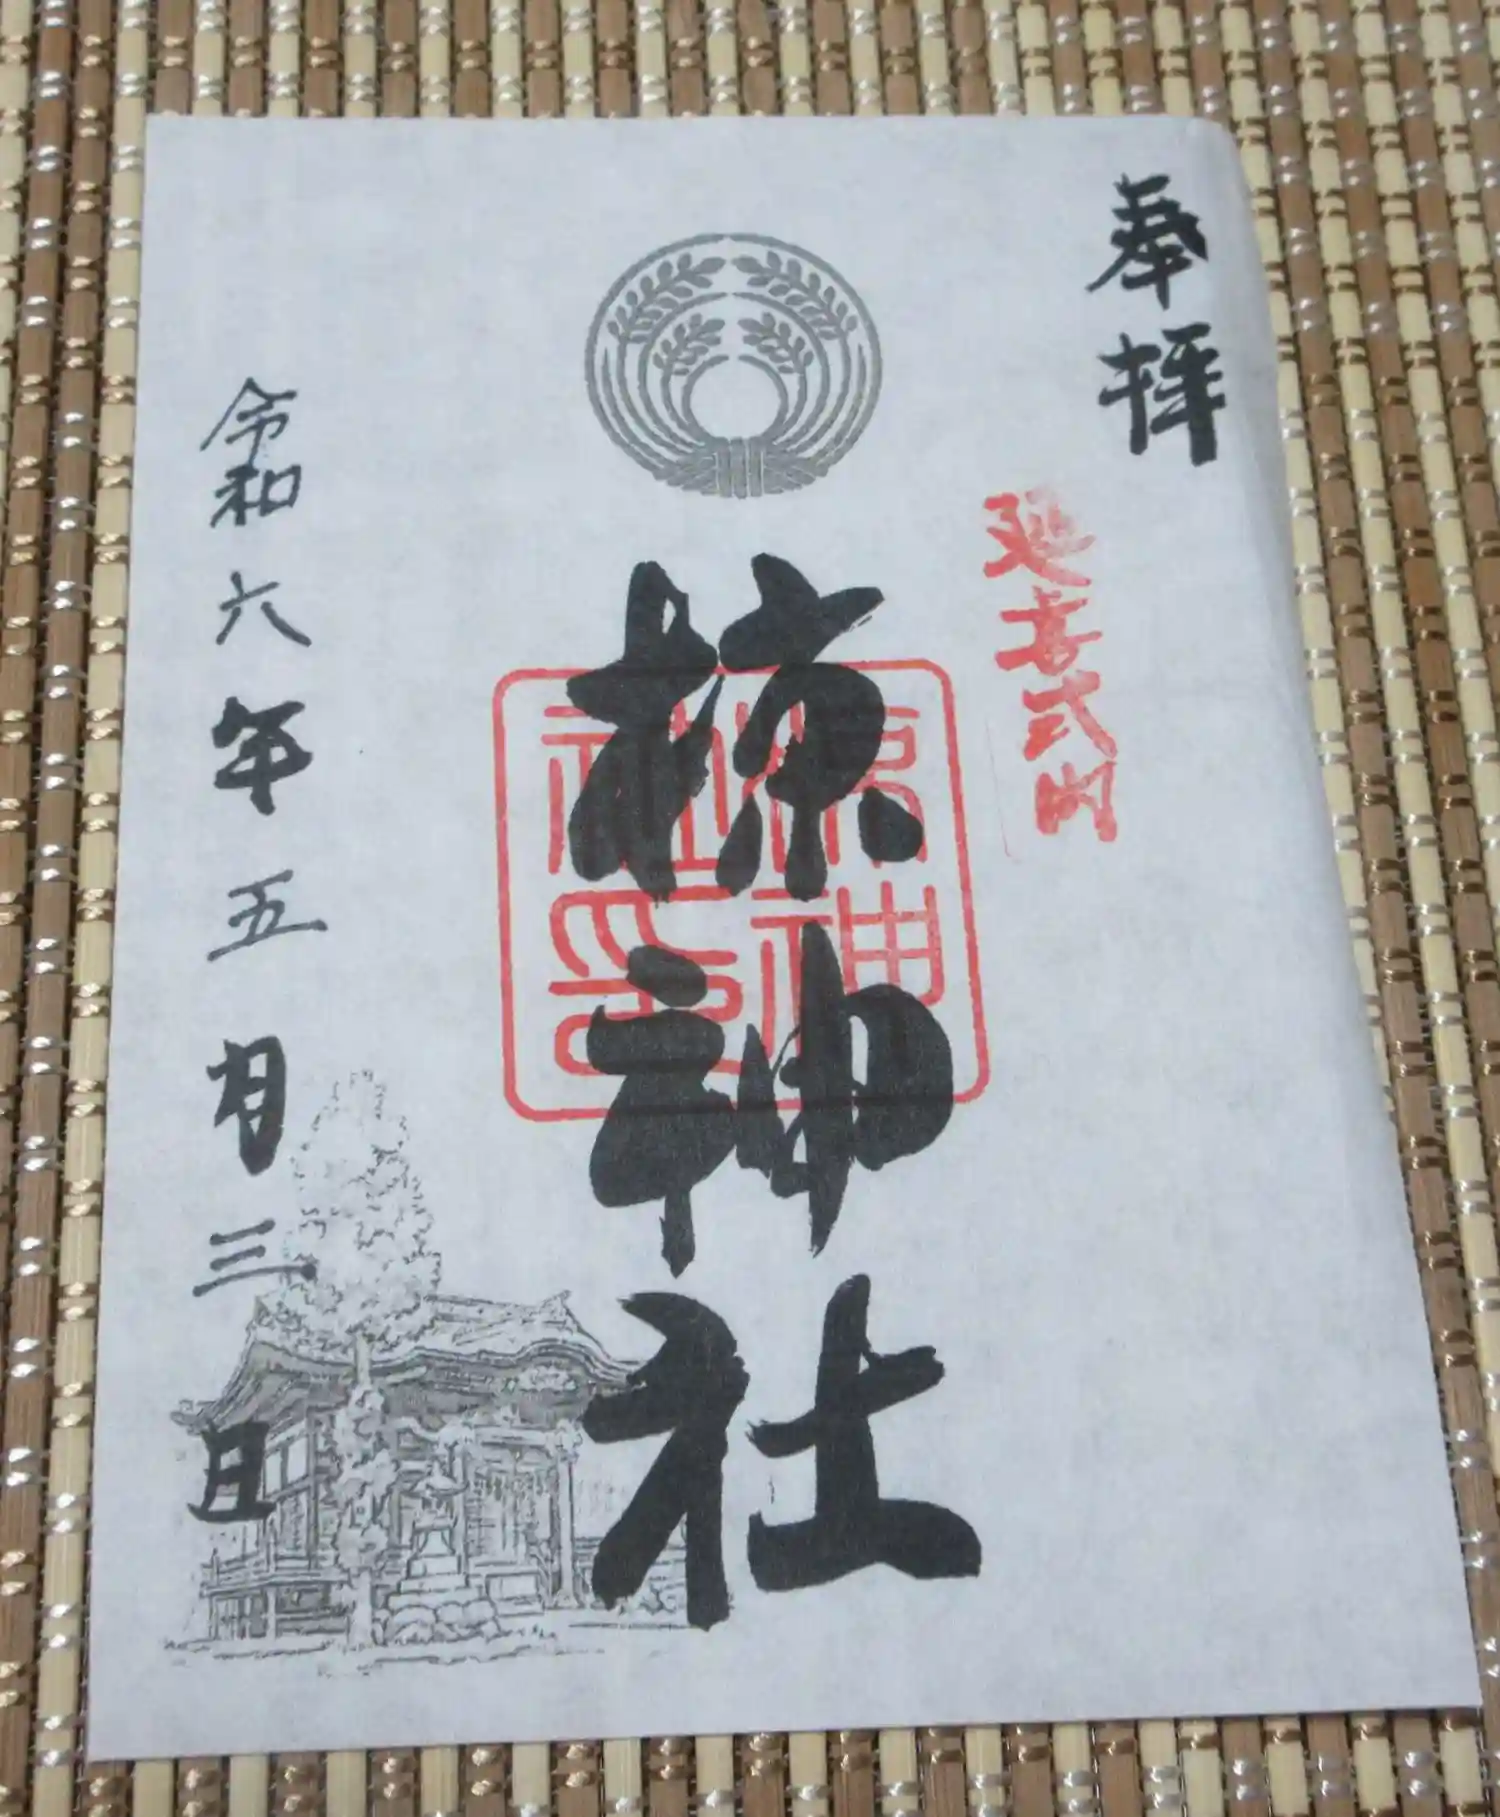 奉拝
延喜式内
椋神社
椋神
社印
令和六年五月三日